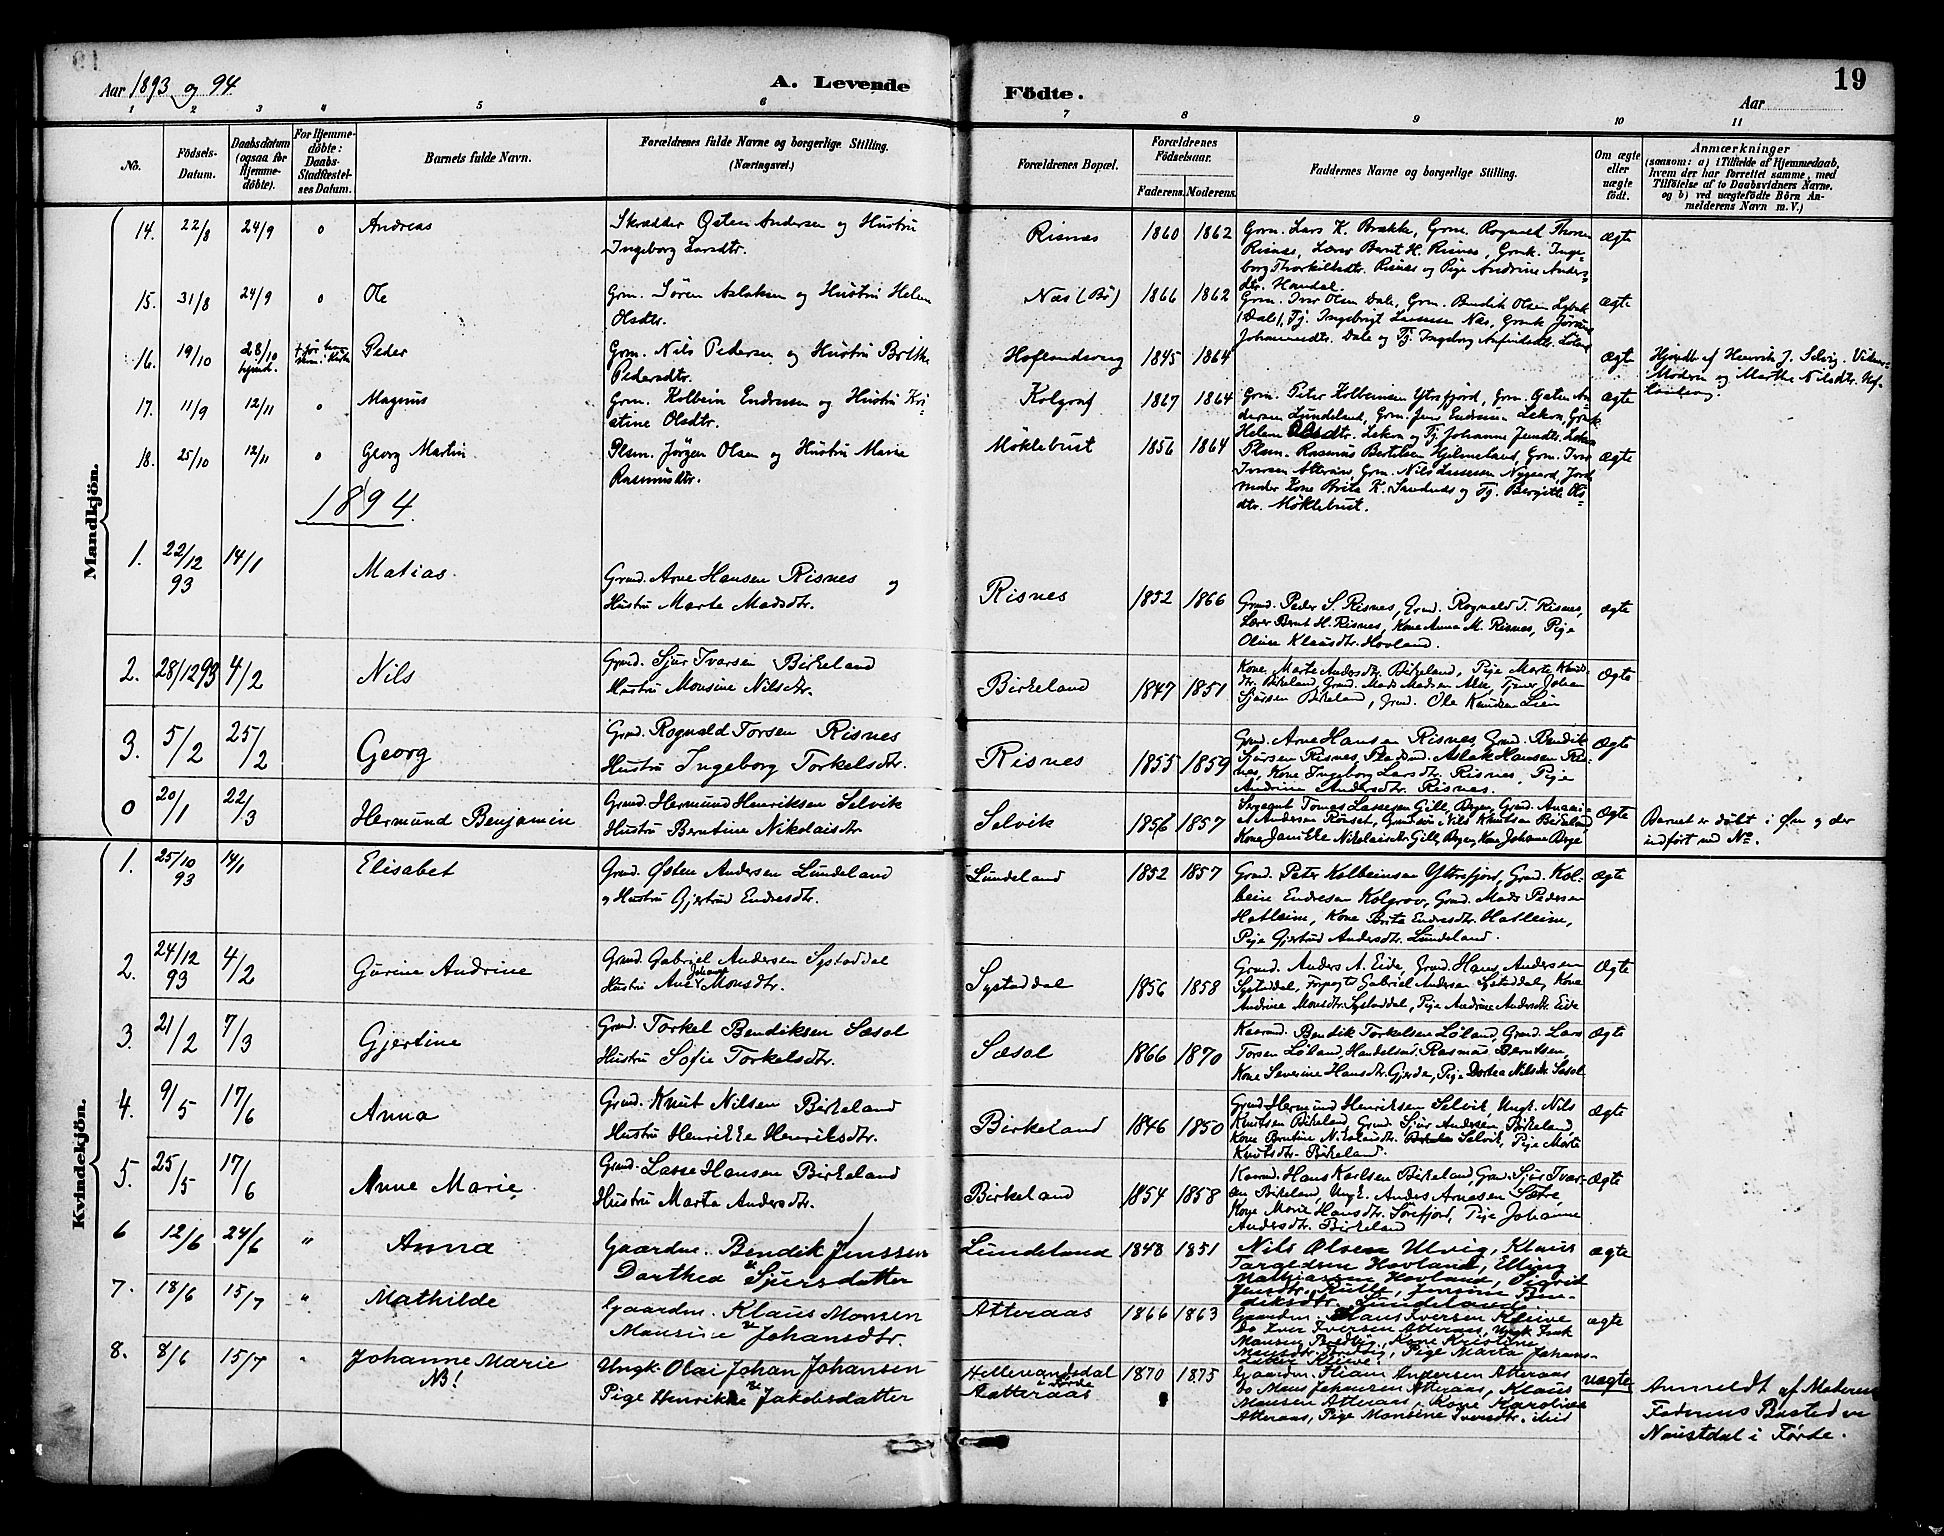 19
Aar 1893 og 94
A. Levende Fødte.
Aar
1 2 3 " 5 6 7 8 9 10 11
No.
Fødsels-Datum.
Daabsdatum (ogsaa for Hjemme-døbte).
For Hjemme-døbte: Daabs-Stadfæstel-ses Datum.
Barnets fulde Navn.
Forældrenes fulde Navne og borgerlige Stilling. (Næringsvei.)
Forældrenes Bopæl.
Forældrenes Fødselsaar.
Faderens. Moderens.
Faddernes Navne og borgerlige Stilling.
Om ægte eller uægte født.
Anmærkninger
(saasom: a) i Tilfælde af Hjemmedaab,
hvem der har forrettet samme, med
Tilføielse af to Daabsvidners Navne.
og b) ved uægtefødte Børn An-
melderens Navn m. V.)
Mandkjøn.
14. 22/8 24/9 o Andreas
Skrædder Østen Andersen og Hustru
Ingeborg Larsdtr.
Risnes 1860 1862
Grm. Lars K. Brække, Grm. Rognald Thorsen
Risnes, Lærer Bernt H. Risnes, Gmk. Inge-
borg Thorkildsdtr. Risnes og Pige Andrine Anders-
dtr. Haudal.
Ægte
15. 31/8 24/9 o Ole
Grm. Sören Aslaksen og Hustru Helene
Olsdtr.
Næs (Bø) 1866 1862
Grm. Iver Olsen Dale, Grm. Bendik Olsen
(Dale), Tj. Ingebrigt Larssen Næs, Gmk
Johannesdtr. Dale og Tj. Ingeborg
ægte
16. 19/10 28/10 hjmd. Peder
Grm. Nils Pedersen og Hustru Brithe
Pedersdtr.
Hoflandsvog 1845 1864
ægte
Hjmdt af Henrik J. Selvig. Vidner
Moderen og Marthe Nilsdtr.
17. 11/9 12/11 o Magnus
Grm. Kolbein Endresen og Hustru Kri-
stine Olsdtr.
Kolgrof 1867 1864
Grm. Peter Kolbeinsen Ytrefjord, Grm. Østen An-
dersen Lundeland, Grm. Jens Endresen Lekva, Gmk.
Helene Olsdtr. Lekva og Tj. Johanne Jensdtr. Lekva
ægte
18. 25/10 12/11 o Georg Martin
Plsm. Jörgen Olsen og Hustru Marie
Rasmusdtr.
Møklebust 1856 1864
Plsm. Rasmus Bertelsen Hjelmeland, Grm. Iver
Iversen Atteraas, Grm. Nils Larssen Nygaard, Jord-
moder Kone Brita K. Sandnes og Tj. Bergitte Ols-
dtr. Møklebust.
ægte
1894.
1. 22/12 93 14/1 Matias.
Grmd. Arne Hansen Risnes og
Hustru Marte Madsdtr.
Risnes 1852 1866
Grmd. Peder S. Risnes, Grmd. Rognald T. Risnes,
Lærer Bernt H. Risnes, Kone Anna M. Risnes, Pige
Oline Klausdtr. Hovland.
ægte
2. 28/12 93 4/2 Nils
Grmd. Sjur Ivarsen Birkeland
Hustru Monsine Nilsdtr.
Birkeland 1847 1851
Kone Marte Andersdtr. Birkeland, Pige Marte Knuts-
dtr. Birkeland, Grmd. Mads Madsen Akse, Tjener Johan
Sjursen Birkeland, Grmd. Ole Knudsen Lien
Ægte
3. 5/2 25/2 Georg
Grmd. Rognald Torsen Risnes
Hustru Ingeborg Torkelsdtr.
Risnes 1855 1859
Grmd. Arne Hansen Risnes, Grmd. Bendik
Sjursen Risnes, Pladsmd. Aslak Hansen Ris-
nes, Kone Ingeborg Larsdtr. Risnes, Pige
Andrine Andersdtr. Risnes.
Ægte
0 20/1 22/3 Hermund Benjamin
Grmd. Hermund Henriksen Selvik
Hustru Berntine Nikolaisdtr
Selvik 1856 1857
Sergeant Tomas Lassesen Gill, Bergen, Grmd. Anani-
as Andersen Rønset, Grmdsøn Nils Knutsen Birkeland,
Kone Janikke Nikolaisdtr Gill, Bergen, Kone Johane Berge
Ægte
Barnet er døbt i Øn og der
indført ved No.
Kvindekjøn.
1. 25/10 93 14/1 Elisabet
Grmd. Østen Andersen Lundeland
og Hustru Gjertrud Endresdtr.
Lundeland 1852 1857
Grmd. Peter Kolbeinsen Yttrefjord, Grmd. Kol-
bein Endresen Kolgrov, Grmd. Mads Pedersen
Hatleim, Kone Brita Endresdtr. Hatleim,
Pige Gjertrud Andersdtr. Lundeland.
Ægte
2. 24/12 93 4/2 Gurine Andrine
Grmd. Gabriel Andersen Systaddal
Hustru Ane Johanne Monsdtr.
Systaddal 1856 1858
Grmd. Anders A. Eide, Grmd. Hans Andersen
Systaddal, Forpagt. Gabriel Andersen Systaddal, Kone
Andrine Monsdtr. Systaddal, Pige Andrine Andersdtr. Eide
Ægte
3. 21/2 7/3 Gjertine
Grmd. Torkel Bendiksen Sæsol
Hustru Sofie Torkelsdtr.
Sæsol 1866 1870
Kaarmd. Bendik Torkelsen Løland, Grmd. Lars
Torsen Løland, Handelsmd. Rasmus Berntsen,
Kone Severine Hansdtr. Gjerde, Pige Dortea Nilsdtr. Sæsol
Ægte
4. 9/5 17/6 Anna
Grmd. Knut Nilsen Birkeland
Hustru Henrikke Henriksdtr.
Birkeland 1846 1850
Grmd. Hermund Henriksen Selvik, Ungk. Nils
Knutsen Birkeland, Grmd. Sjur Andersen Birkeland,
Kone Berntine Nikolaisdtr. Selvik, Pige Marte
Knutsdtr. Birkeland.
Ægte
5. 25/5 17/6 Anne Marie
Grmd. Lasse Hansen Birkeland
Hustru Marta Andersdtr.
Birkeland 1854 1858
Kaarmd. Hans Karlsen Birkeland, Grmd. Sjur Ivar-
sen Birkeland, Ungk. Anders Arnesen Sætre,
Kone Marie Hansdtr. Sørefjord, Pige Johanne
Andersdtr. Birkeland
Ægte
6 12/6 24/6 " Anna
Gaardm. Bendik Jenssen
& Dorthea Sjursdatter
Lundeland 1848 1851
Nils Olsen Ulvig, Klaus
Targedsen Hovland, Elling
Mathiassen Hovland, Sigrid
Jensdtr. Kulle, Jensine Ben-
diksdtr. Lundeland.
ægte
7. 18/6 15/7 " Mathilde
Gaardm. Klaus Monsen
& Monsine Johansdtr.
Atteraas 1866 1863
Gaardm. Klaus Iversen Kleive
Do Iver Iversen Atteraas, Ungk
Monsen Bredvig, Kone Kristine
Monsdtr. Bredvig, Pige Marta Johans-
ægte
8. 8/6 15/7 " Johanne Marie
NB!
Ungk. Olai Johan Johansen
& Pige Henrikke Jakobsdatter
Hellevangsdal
i Førde
Aatteraas
1870 1875
Gaardm. Andersen Atteraas
Do Mons Johansen Atteraas, Klaus
Monsen Atteraas, Kone Karoline
Atteraas, Pige Monsine Iversdtr. ibid
uægte
Anmeldt af Moderen
Faderens Bosted er
Naustdal i Førde.